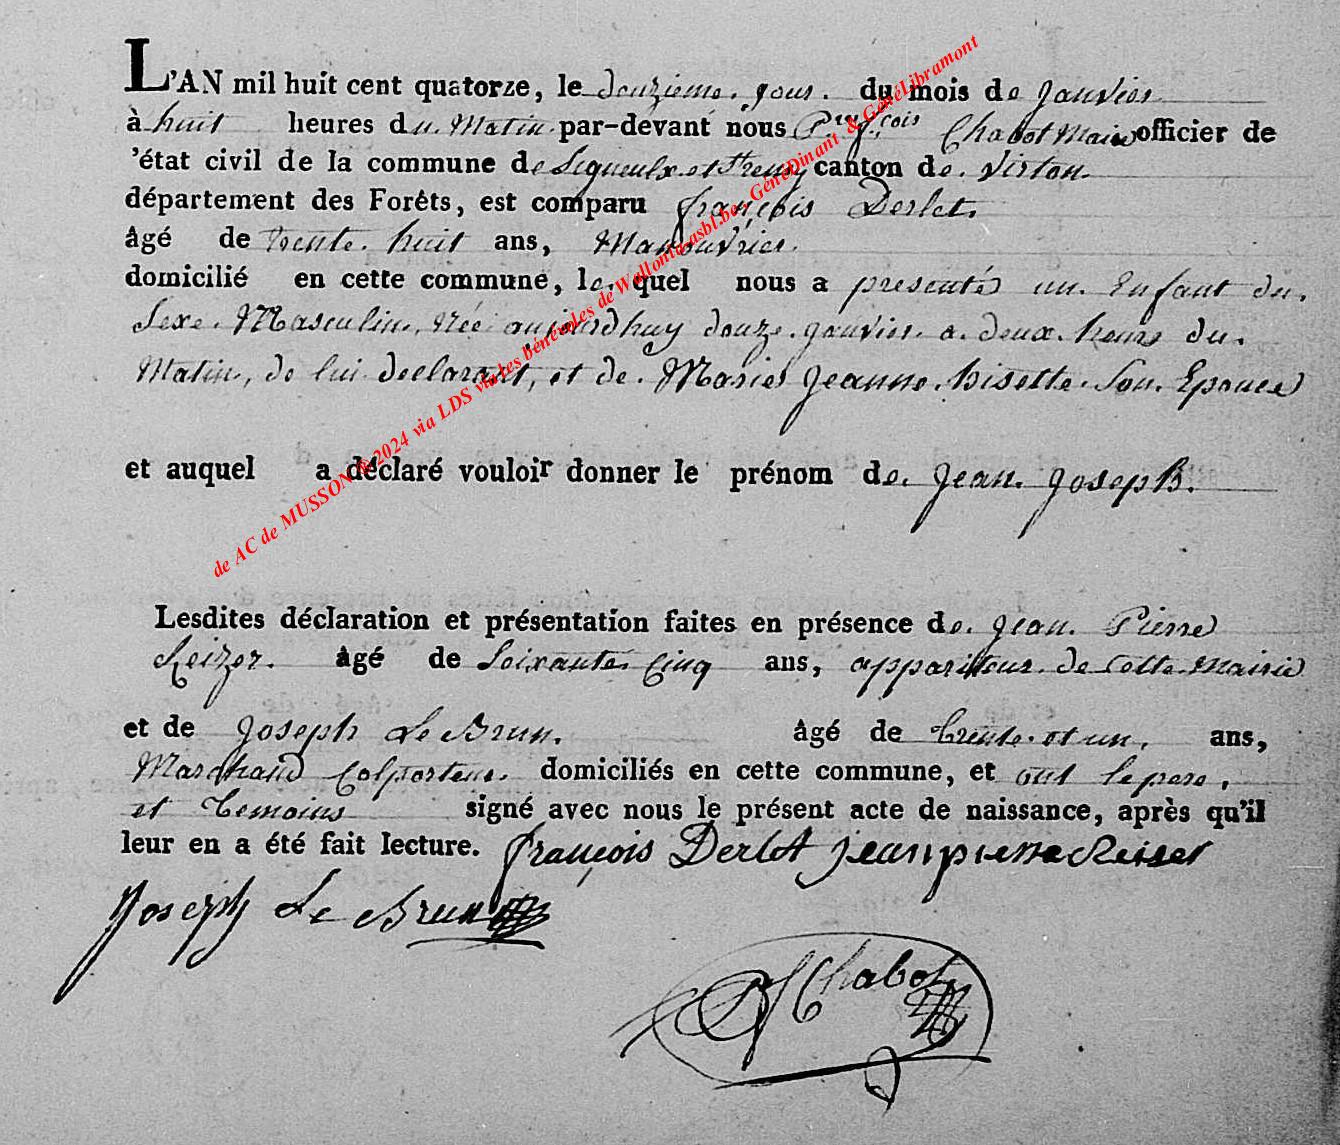 L'AN mil huit cent quatorze, le douzieme. jour. du mois de janvier
à huit heures du. Matin par-devant nous Chabot Maire officier de
'état civil de la commune de Signeulx et canton de. Virton
département des Forêts, est comparu françois Derlet.
âgé de trente. huit ans, Manouvrier.
domicilié en cette commune, le. quel nous a presenté un. Enfant du.
Sexe. Masculin, Née aujourdhuy douze. janvier a. deux. heure du.
Matin, de lui declarant, et de. Marie jeanne. hisette. Son. Epouce
et auquel a déclaré vouloir donner le prénom de. jean. joseph.
Lesdites déclaration et présentation faites en présence de. jean. Pierre
Reizer. âgé de Soixante Cinq ans, appariteur. de cette Mairie
et de joseph Le Brun. âgé de trente. et un, ans,
Marchand Colporteur. domiciliés en cette commune, et ont le pere,
et temoins signé avec nous le présent acte de naissance, après qu'il
leur en a été fait lecture. françois Derlet jean pierre Reiser
Joseph Le Brun
Chabot
de AC de MUSSON © 2024 via LDS via les bénévoles de Wallonia-asbl.be, GénéDinant & GénéLibramont